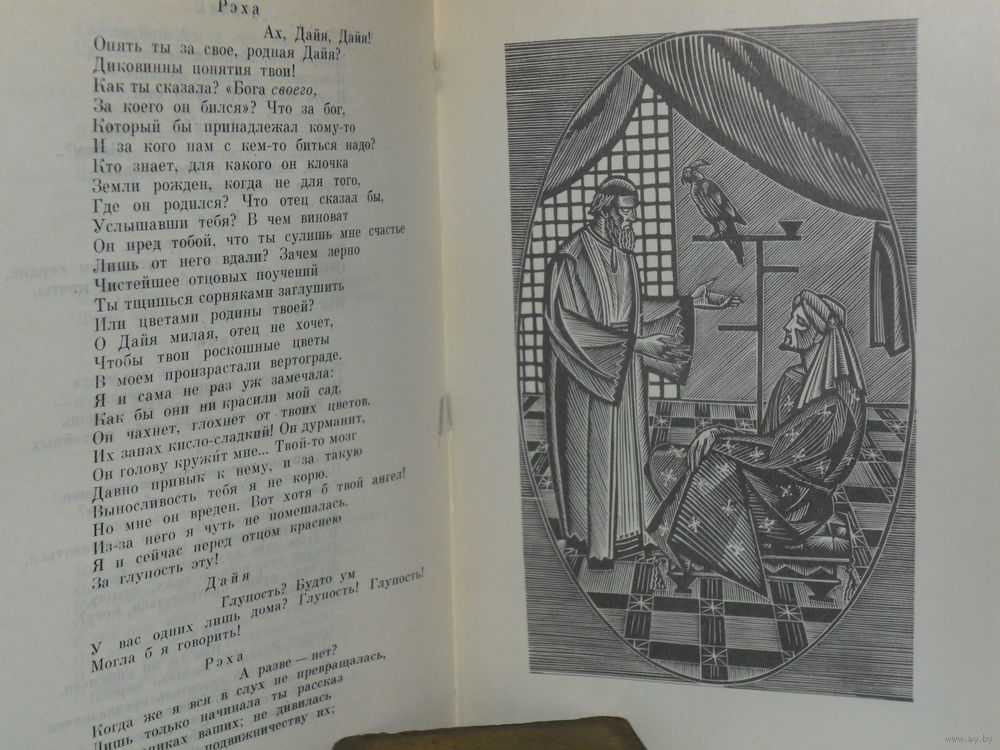 Рэха
Ах, Дайя, Дайя!
Опять ты за свое, родная Дайя?
Диковинны понятия твои!
Как ты сказала? «Бога своего,
За коего он бился»? Что за бог,
Который бы принадлежал кому-то
И за кого нам с кем-то биться надо?
Кто знает, для какого он клочка
Земли рожден, когда не для того,
Где он родился? Что отец сказал бы,
Услышавши тебя? В чем виноват
Он пред тобой, что ты сулишь мне счастье
Лишь от него вдали? Зачем зерно
Чистейшее отцовых поучений
Ты тщишься сорняками заглушить
Или цветами родины твоей?
О Дайя милая, отец не хочет,
Чтобы твои роскошные цветы
В моем произрастали вертограде.
Я и сама не раз уж замечала:
Как бы они ни красили мой сад,
Он чахнет, глохнет от твоих цветов.
Их запах кисло-сладкий! Он дурманит,
Он голову кружит мне... Твой-то мозг
Давно привык к нему, и за такую
Выносливость тебя я не корю.
Но мне он вреден. Вот хотя б твой ангел!
Из-за него я чуть не помешалась.
Я и сейчас перед отцом краснею
За глупость эту!
Дайя
Глупость? Будто ум
У вас одних лишь дома? Глупость! Глупость!
Могла б я говорить!
Рэха
А разве — нет?
Когда же я вся в слух не превращалась,
Лишь только начинала ты рассказ
ваших; не дивилась
подвижничеству их;
www.ay.by